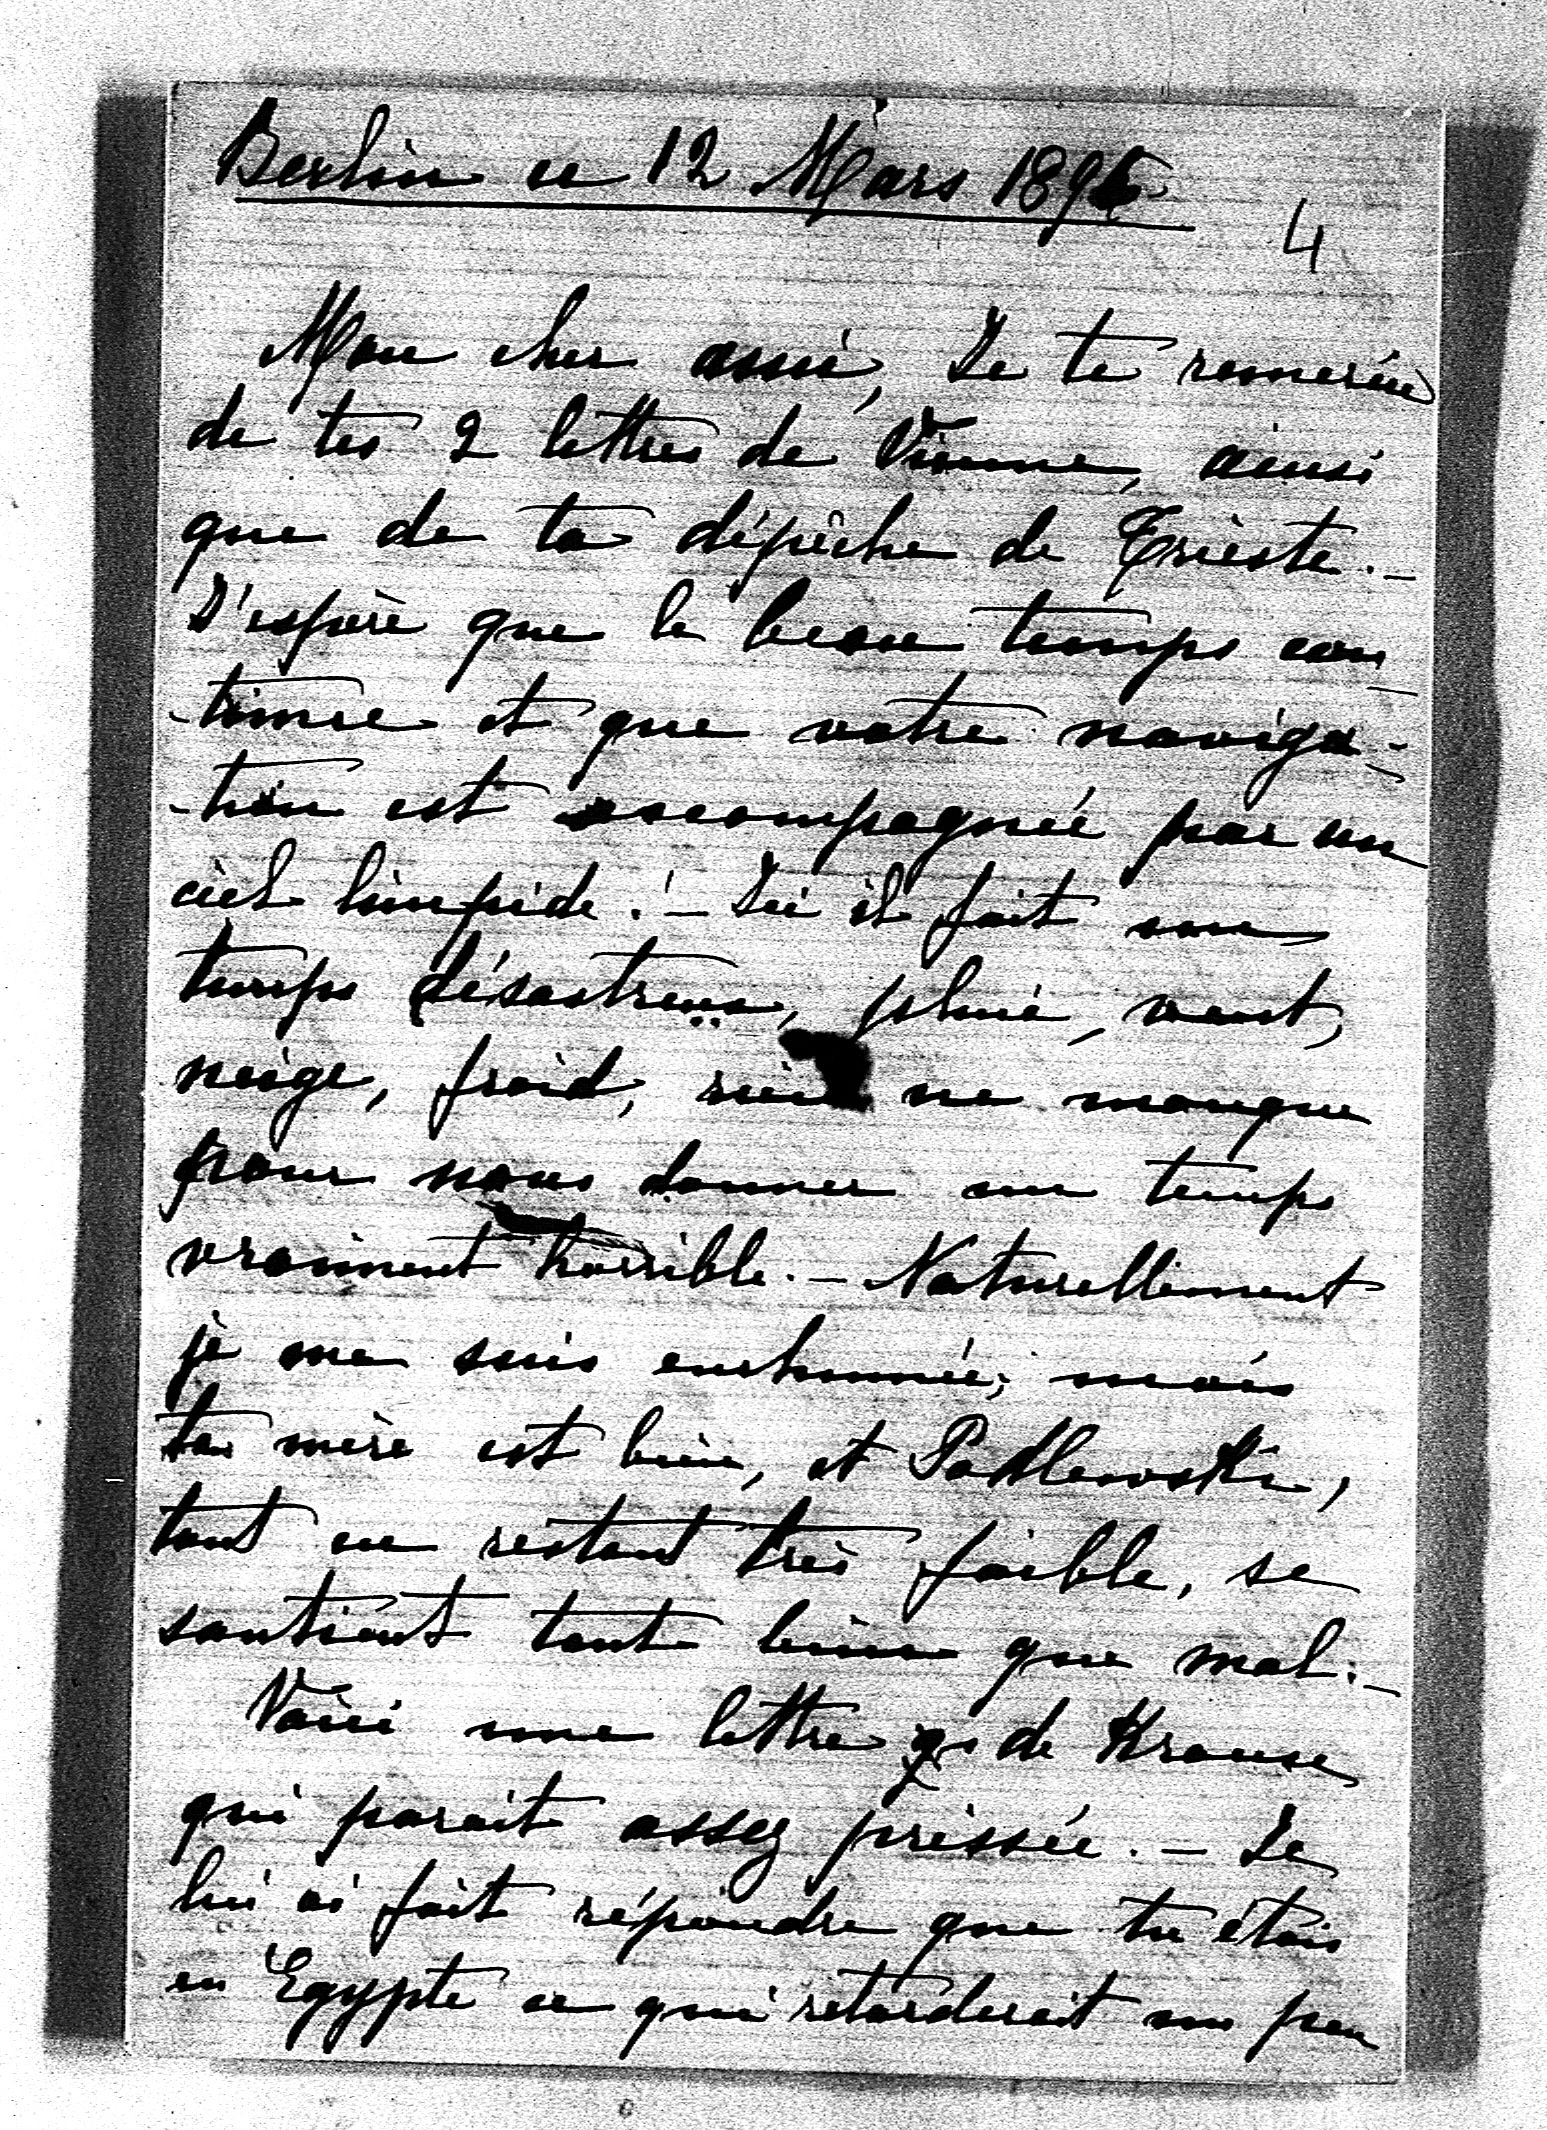 Berlin ce 12 Mars 1896
4
Mon cher ami, Je te remercie
de tes 2 lettres de Vienne, ainsi
que de ta dépêche de Trieste. _
J'espère que le beau temps con
-tinue et que votre naviga-
-tion est accompagnée par un
ciel limpide. ! _ Ici il fait un
temps désastreux, pluie, vent,
neige, froid, rien ne manque
pour nous donner un temps
vraiment horrible. _ Naturellement
je me suis enrhumée; mais
ta mère est bien, et Padlewski,
tout en restant très faible, se
soutient tant bien que mal. _
Voici une lettre de Krause
qui parait assez pressée. _ Je
lui ai fait répondre que tu étais
en Egypte ce qui retarderait un peu